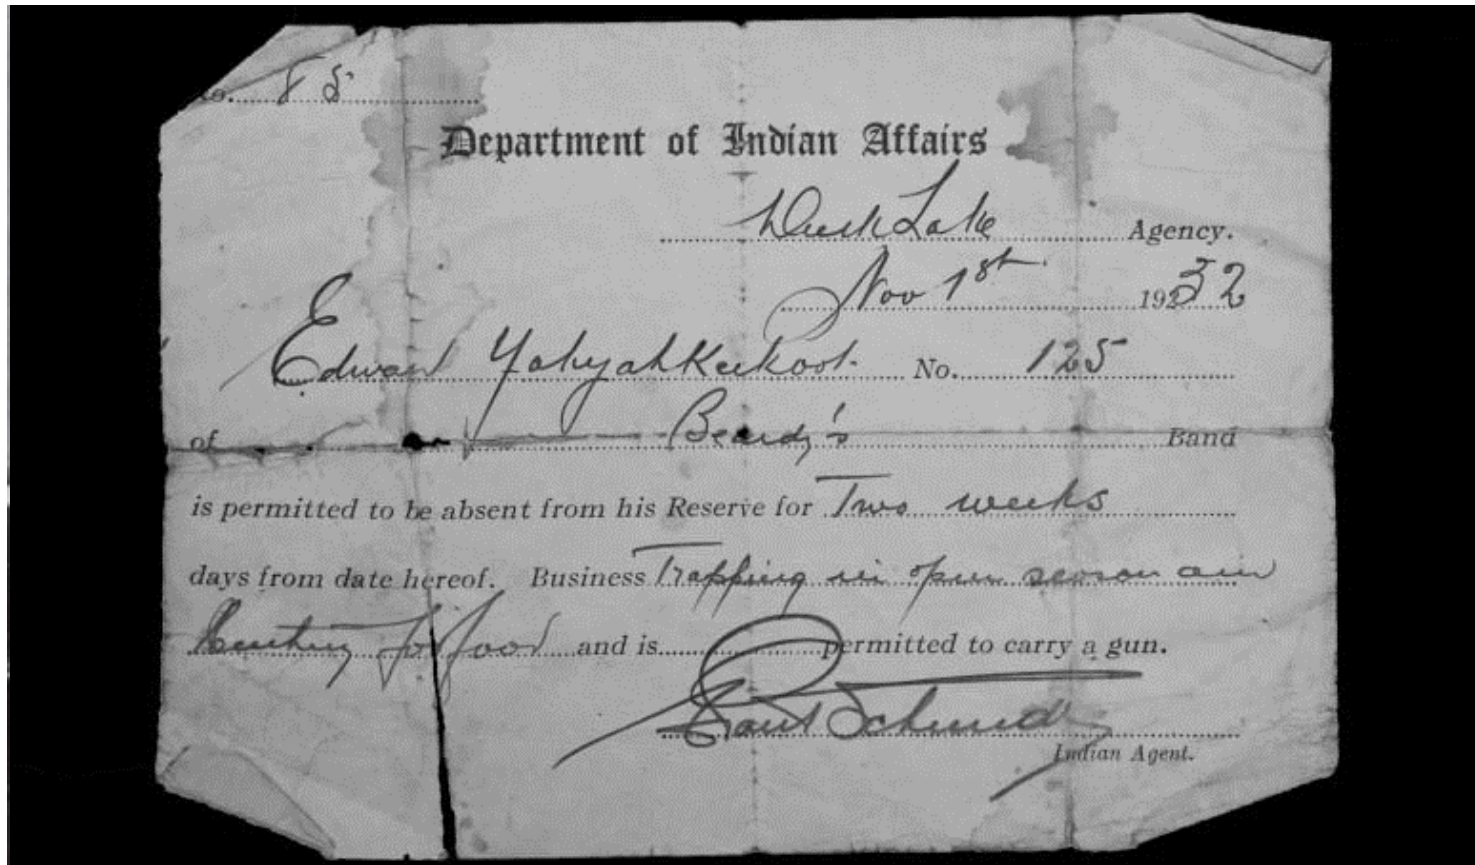 No. 85
Department of Indian Affairs
Duck Lake Agency.
Nov 1st 1932
Edward YahyahKeekoot. No. 125
of Beardy's Band
is permitted to be absent from his Reserve for Two weeks
days from date hereof. Business Trapping in open season and
Hunting for food and is permitted to carry a gun.
Schmidt
Indian Agent.